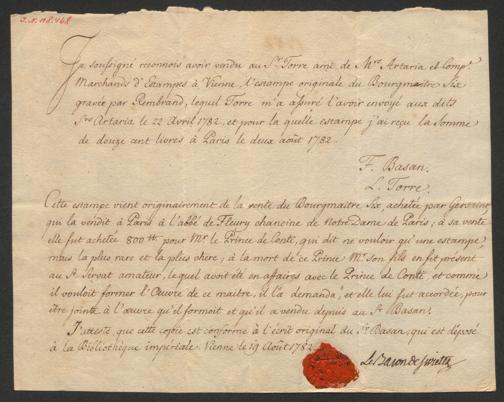 J.N. 118.468
Je soussigné reconnois avoir vendu au Sr. Torre ami de Mrs. Artaria et Compe.
Marchands d'Estampes à Vienne, l'estampe originale du Bourgmaitre Six
gravée par Rembrand, lequel Torre m'a assuré l'avoir envoyé aux dits
Srs Artaria le 22 Avril 1782, et pour la quelle estampe j'ai reçu la Somme
de douze cent livres à Paris le deux août 1782.
F. Basan.
L. Torre.
Cette estampe vient originairement de la vente du Bourgmaitre Six, achetée par Gersaint
qui la vendit à Paris à l'abbé de Fleury chanoine de Notre Dame de Paris; à sa vente
elle fut achetée 800 tt pour Mr le Prince de Conti, qui dit ne vouloir qu'une estampe
mais la plus rare et la plus chere; à la mort de ce Prince Mr. son fils en fit présent
au Sr amateur, lequel avoit été en affaires avec le Prince de Conti, et comme
il vouloit former l'Œuvre de ce maitre, il la demanda, et elle lui fut accordée, pour
être jointe à l'œuvre qu'il formoit et qu'il a vendu depuis au Sr Basan.
J'atteste que cette copie est conforme à l'écrit original du Sr Basan, qui est déposé
à la Bibliothèque impériale. Vienne le 19 Août 1782.
Le Baron de Swieten